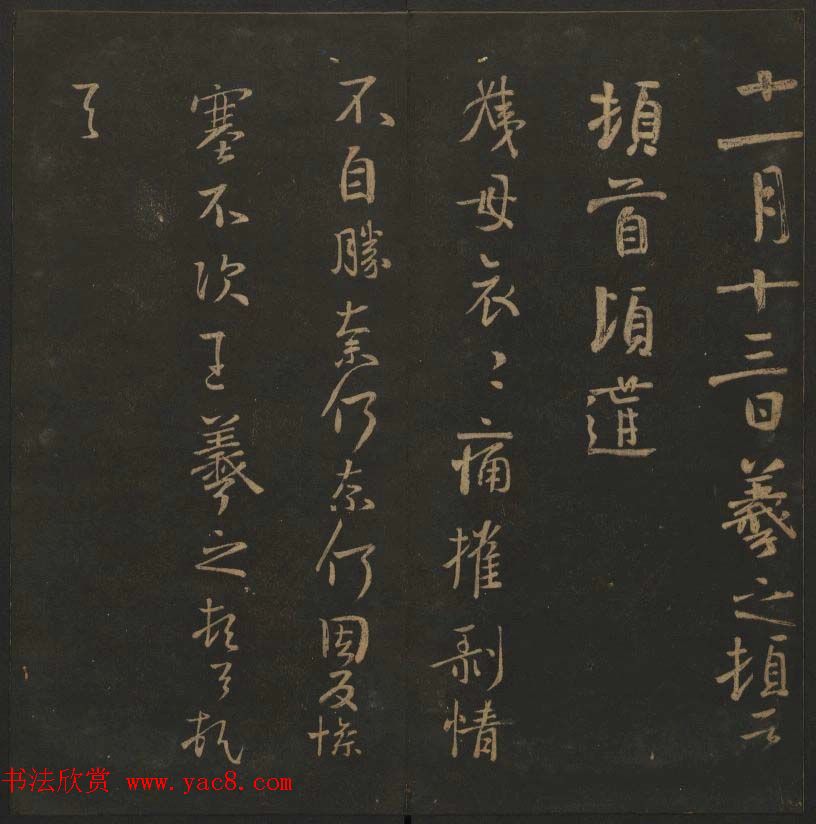 十一月十三日羲之頓首
頓首頃遘
姨母哀哀痛摧剝情
不自勝奈何奈何因反慘
塞不次王羲之頓首頓
首
书法欣赏 www.yac8.com